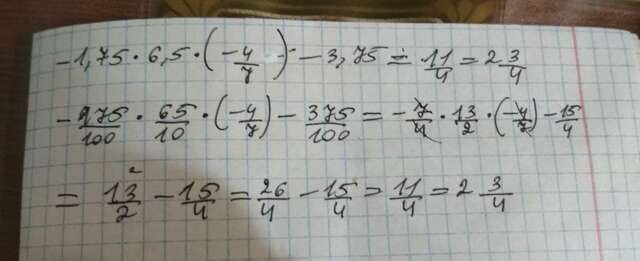 -1,75 · 6,5 · (-4/7) - 3,75 = 11/4 = 2 3/4
-175/100 · 65/10 · (-4/7) - 375/100 = -7/4 · 13/2 · (-4/7) - 15/4
= 13/2 ² - 15/4 = 26/4 - 15/4 = 11/4 = 2 3/4